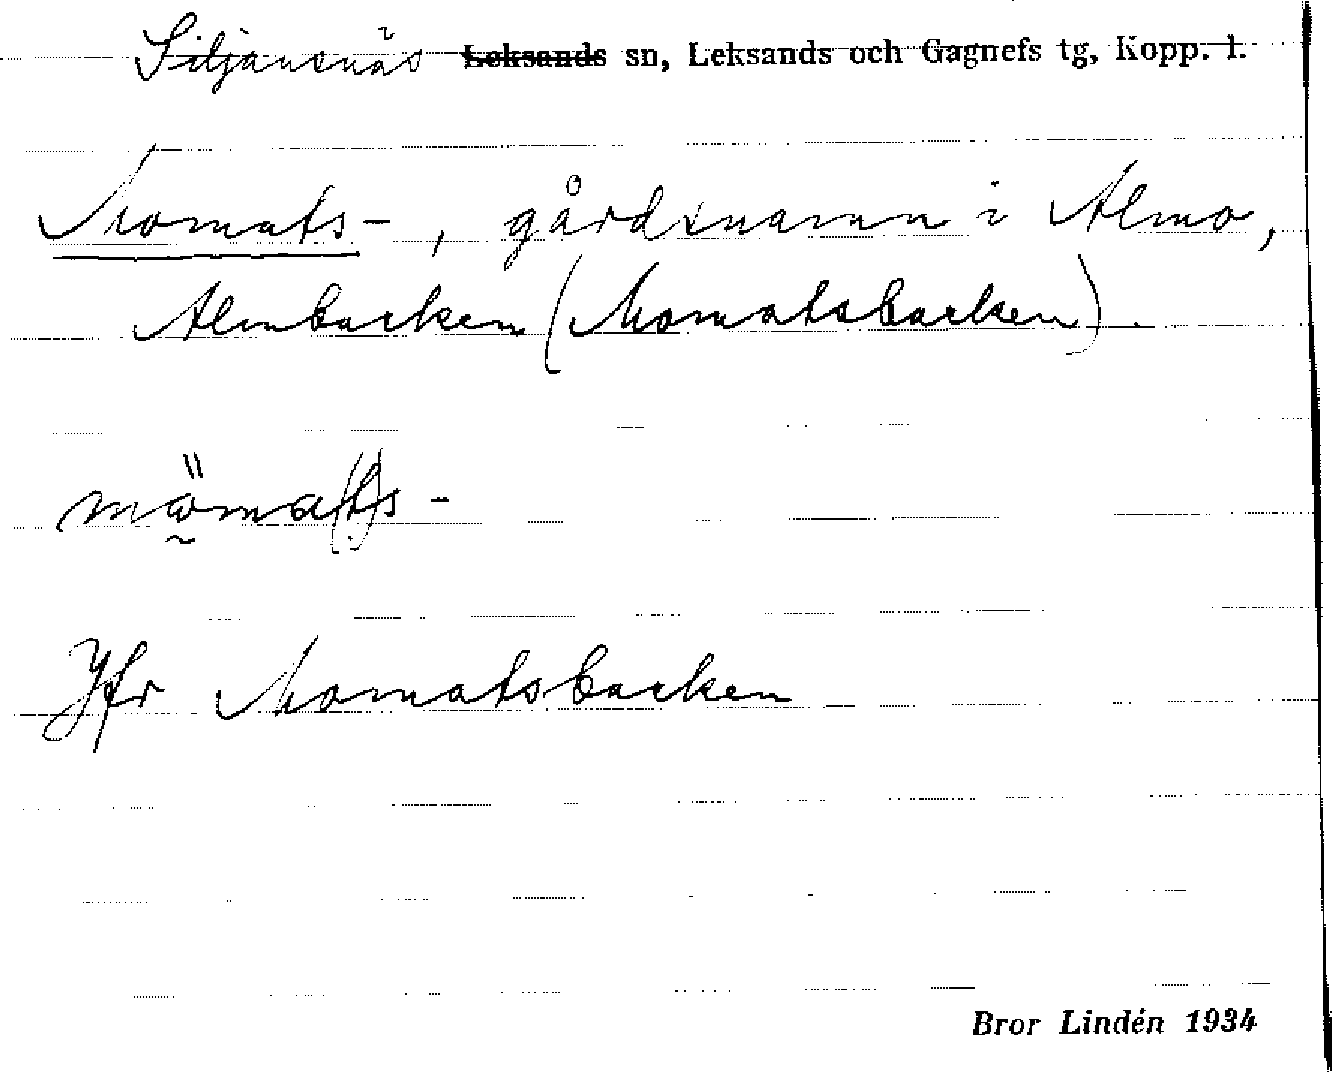 Siljansnäs Leksands sn, Leksands och Gagnefs tg, Kopp. l.
Momats-, gårdsnamn i Almo,
Almbacken (Momatsbacken).
mö̰ma(t)s-
Jfr Momatsbacken
Bror Lindén 1934